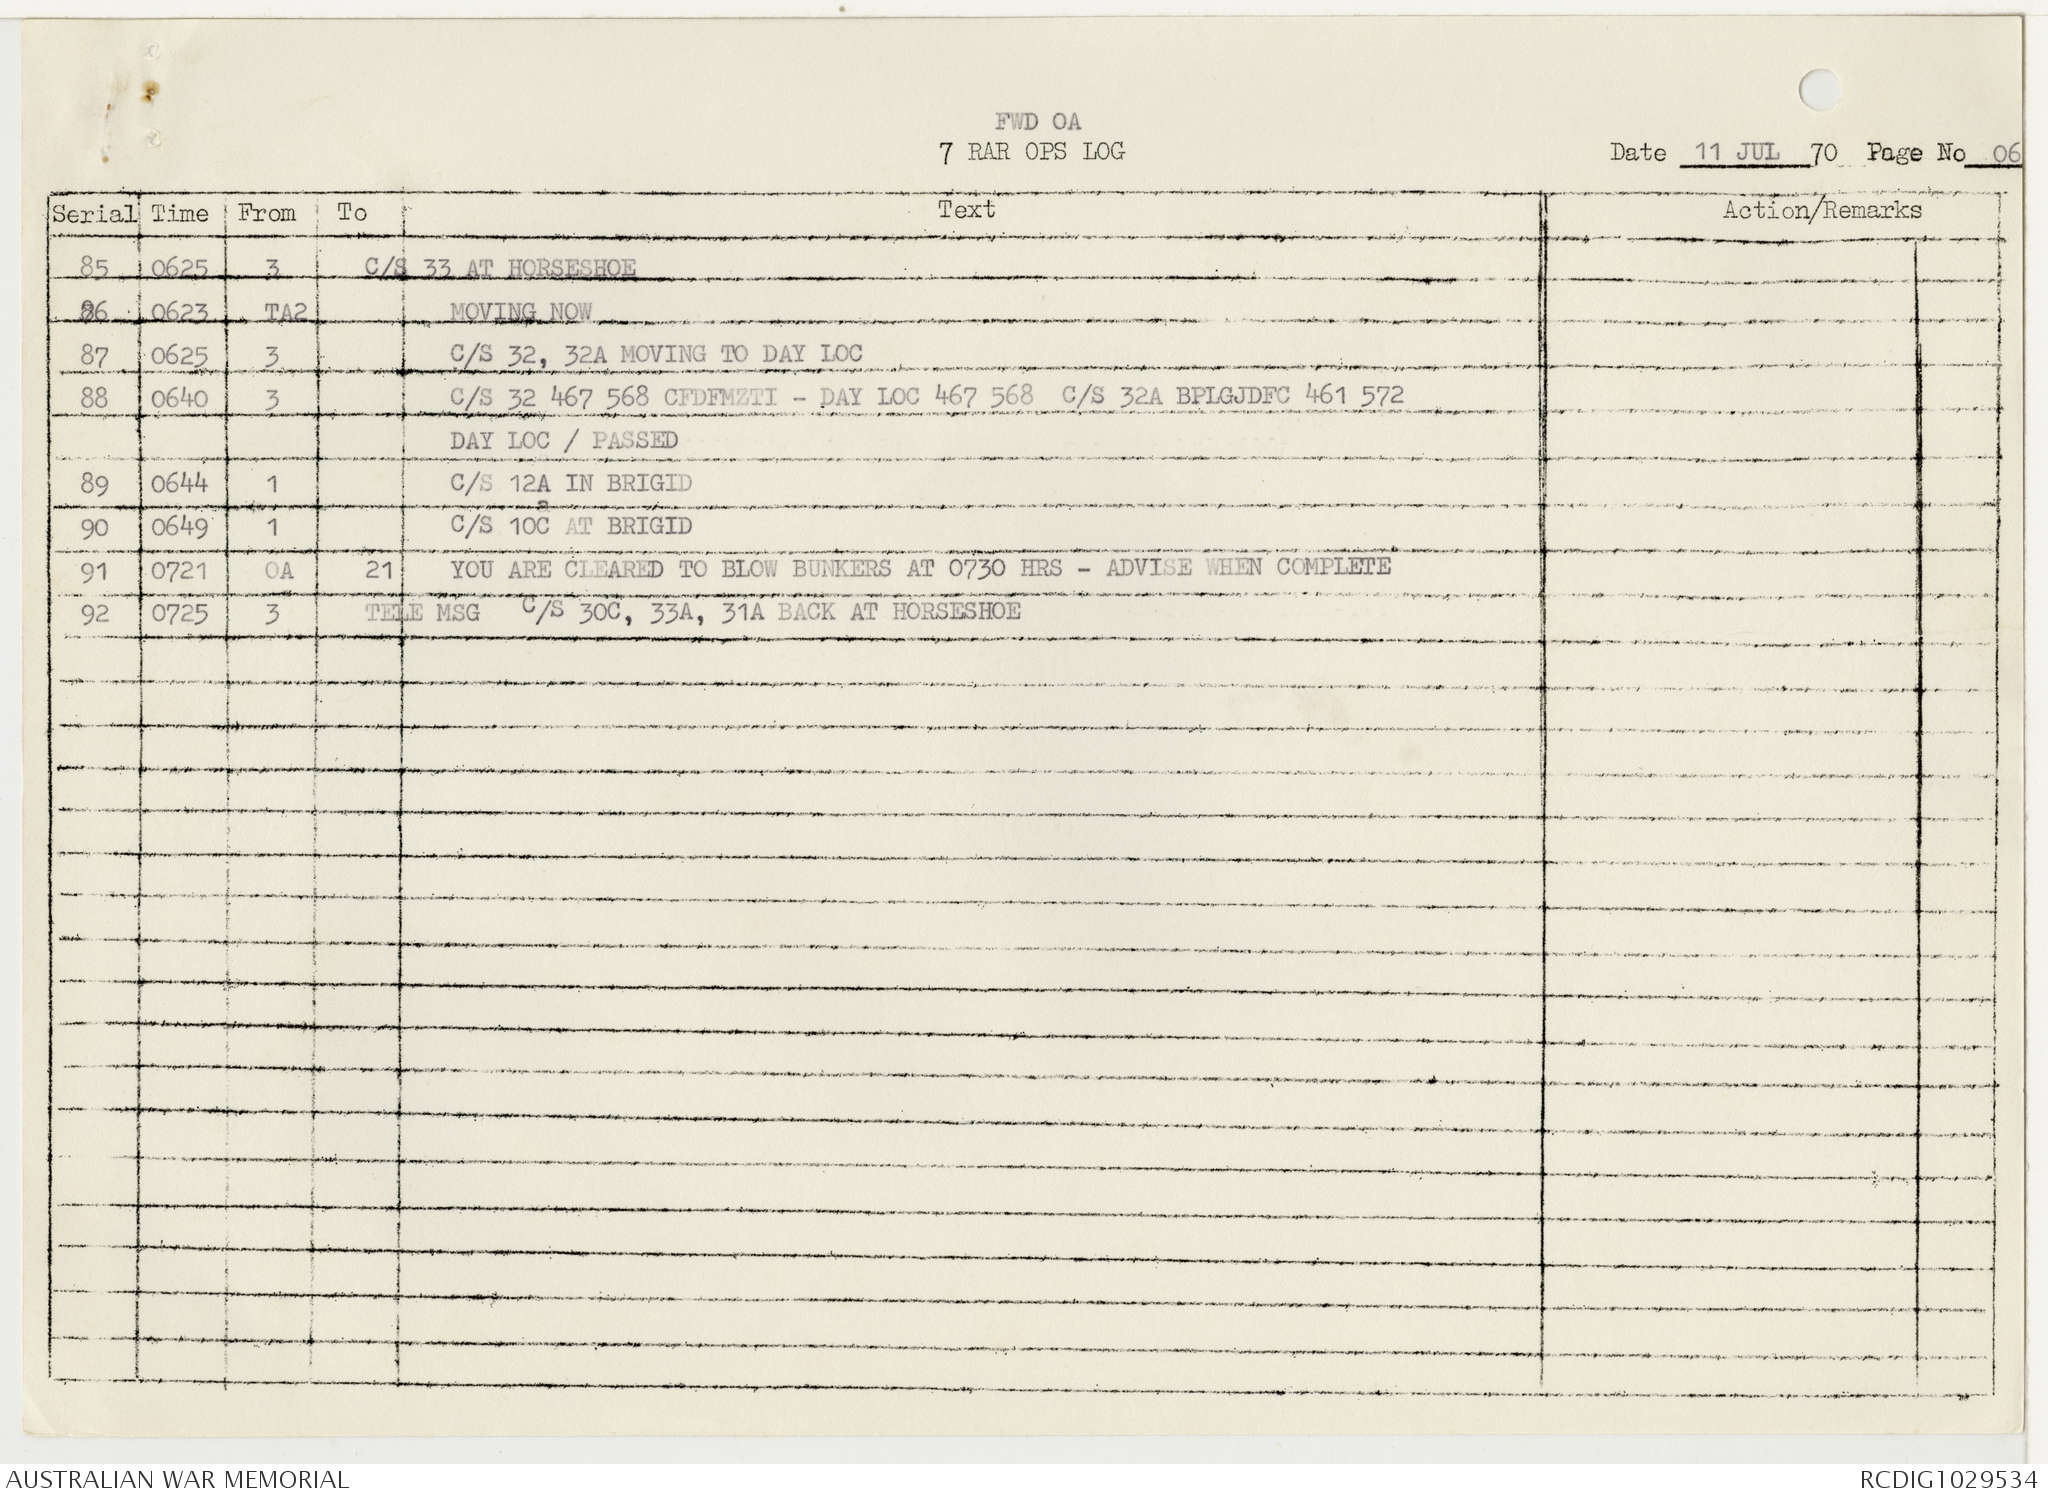 FWD OA
7 RAR OPS LOG
Date 11 JUL 70 Page No 06
Serial Time From To Text Action/Remarks
85 0625 3 C/S 33 AT HORSESHOE
86 0623 TA2 MOVING NOW
87 0625 3 C/S 32, 32A MOVING TO DAY LOC
88 0640 3 C/S 32 467 568 CFDFMZTI - DAY LOC 467 568 C/S 32A BPLGJDFC 461 572
DAY LOC / PASSED
89 0644 1 C/S 12A IN BRIGID
a
90 0649 1 C/S 10C AT BRIGID
91 0721 OA 21 YOU ARE CLEARED TO BLOW BUNKERS AT 0730 HRS - ADVISE WHEN COMPLETE
92 0725 3 TELE MSG C/S 30C, 33A, 31A BACK AT HORSESHOE
AUSTRALIAN WAR MEMORIAL RCDIG1029534